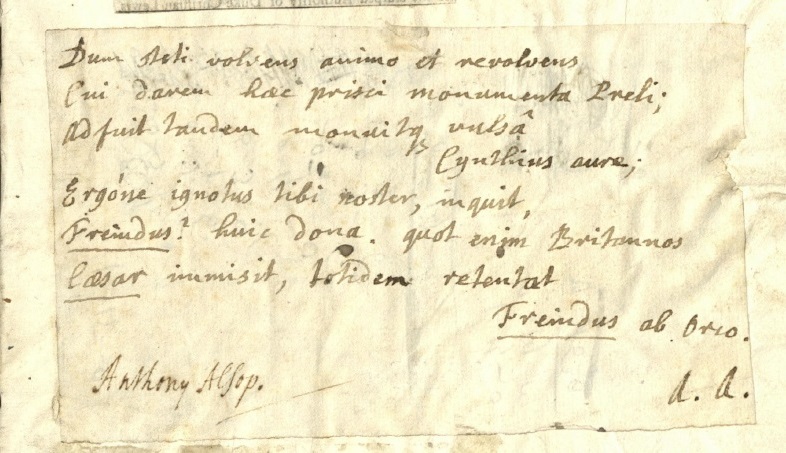 Dum steti volvens animo et revolvens
Cui darem hæc prisci monumenta Preli;
Adfuit tandem monuitqꝫ vulsâ
Cynthius aure;
Ergóne ignotus tibi noster, inquit,
Freindus? huic dona. quot enim Britannos
Cæsar immisit, totidem retentat
Freindus ab Orco.
Anthony Alsop.
A. A.